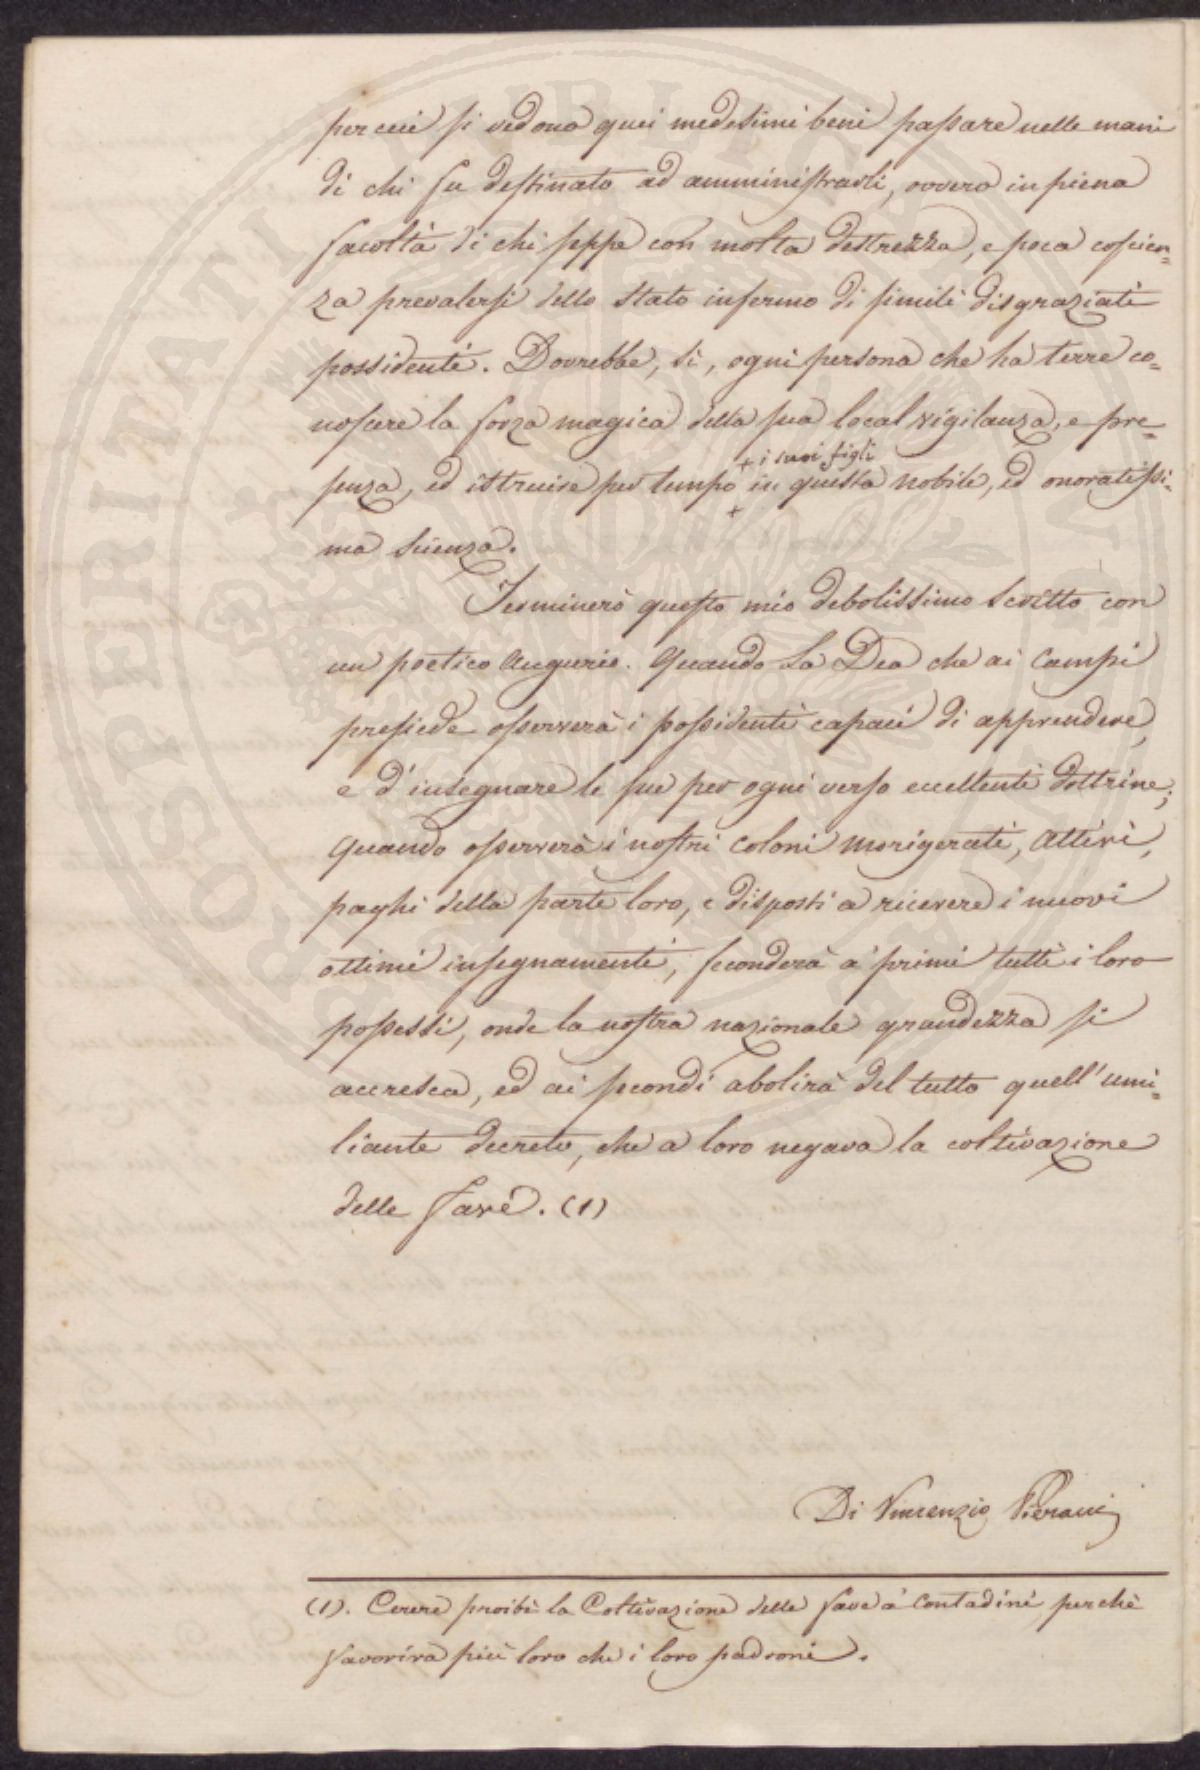 per cui si vedono quei medesimi beni passare nelle mani
di chi fu destinato ad amministrarli, ovvero in piena
facoltà di chi seppe con molta destrezza, e poca coscien=
za prevalersi dello stato infermo di simili disgraziati
possidenti. Dovrebbe, si, ogni persona che ha terre co=
noscere la forza magica della sua local vigilanza, e pre=
senza, ed istruire per tempo + i suoi figli in questa nobile, ed onoratissi=
ma scienza.
Terminerò questo mio debolissimo scritto con
un poetico augurio. Quando La Dea che ai Campi
presiede osserverà i possidenti capaci di apprendere,
e d'insegnare le sue per ogni verso eccellenti dottrine;
quando osserverà i nostri Coloni morigerati, attivi,
paghi della parte loro, e disposti a ricevere i nuovi
ottimi insegnamenti, seconderà a' primi tutti i loro
possessi, onde la nostra nazionale grandezza si
accresca, ed ai secondi abolirà del tutto quell'umi=
liante decreto, che a loro negava la coltivazione
delle fave. (1)
Di Vincenzio Pieracci
(1). Cerere proibì la Coltivazione delle fave a' Contadini perchè
favoriva più loro che i loro padroni.
PROSPERITATI PUBLICAE